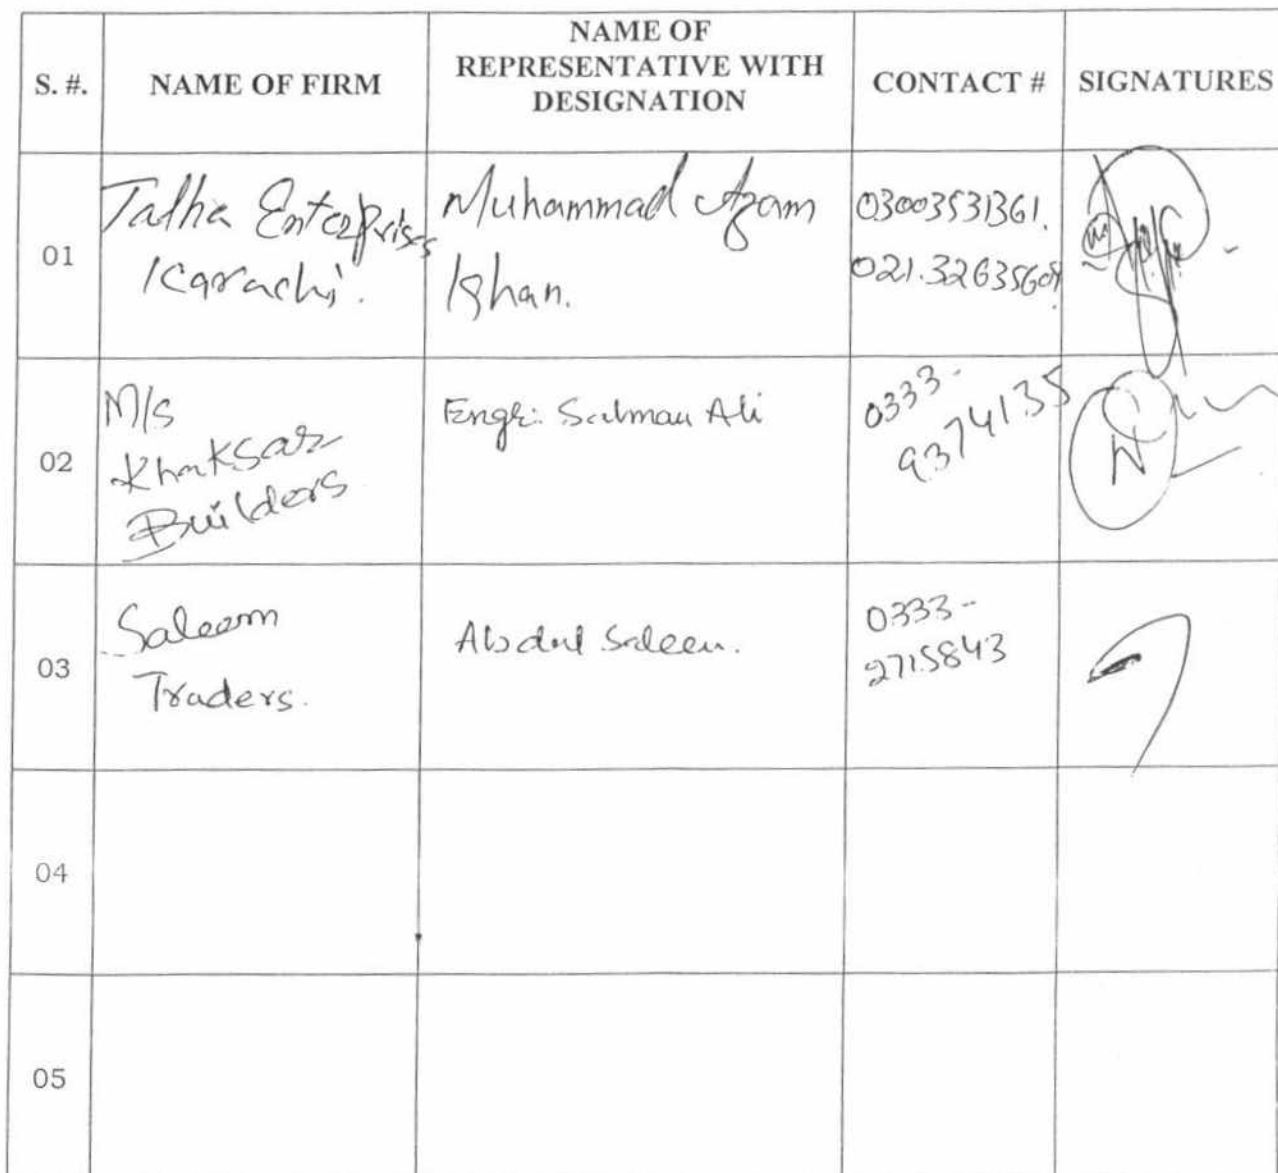 S. #.
NAME OF FIRM
NAME OF
REPRESENTATIVE WITH
DESIGNATION
CONTACT #
SIGNATURES
01
Talha Enterprises
Karachi.
Muhammad Azam
Khan.
03003531361.
021.32635609
02
M/s
Khaksar
Builders
Engr: Salman Ali
0333-
9374135
03
Saleem
Traders.
Abdul Saleem.
0333-
2715843
04
05